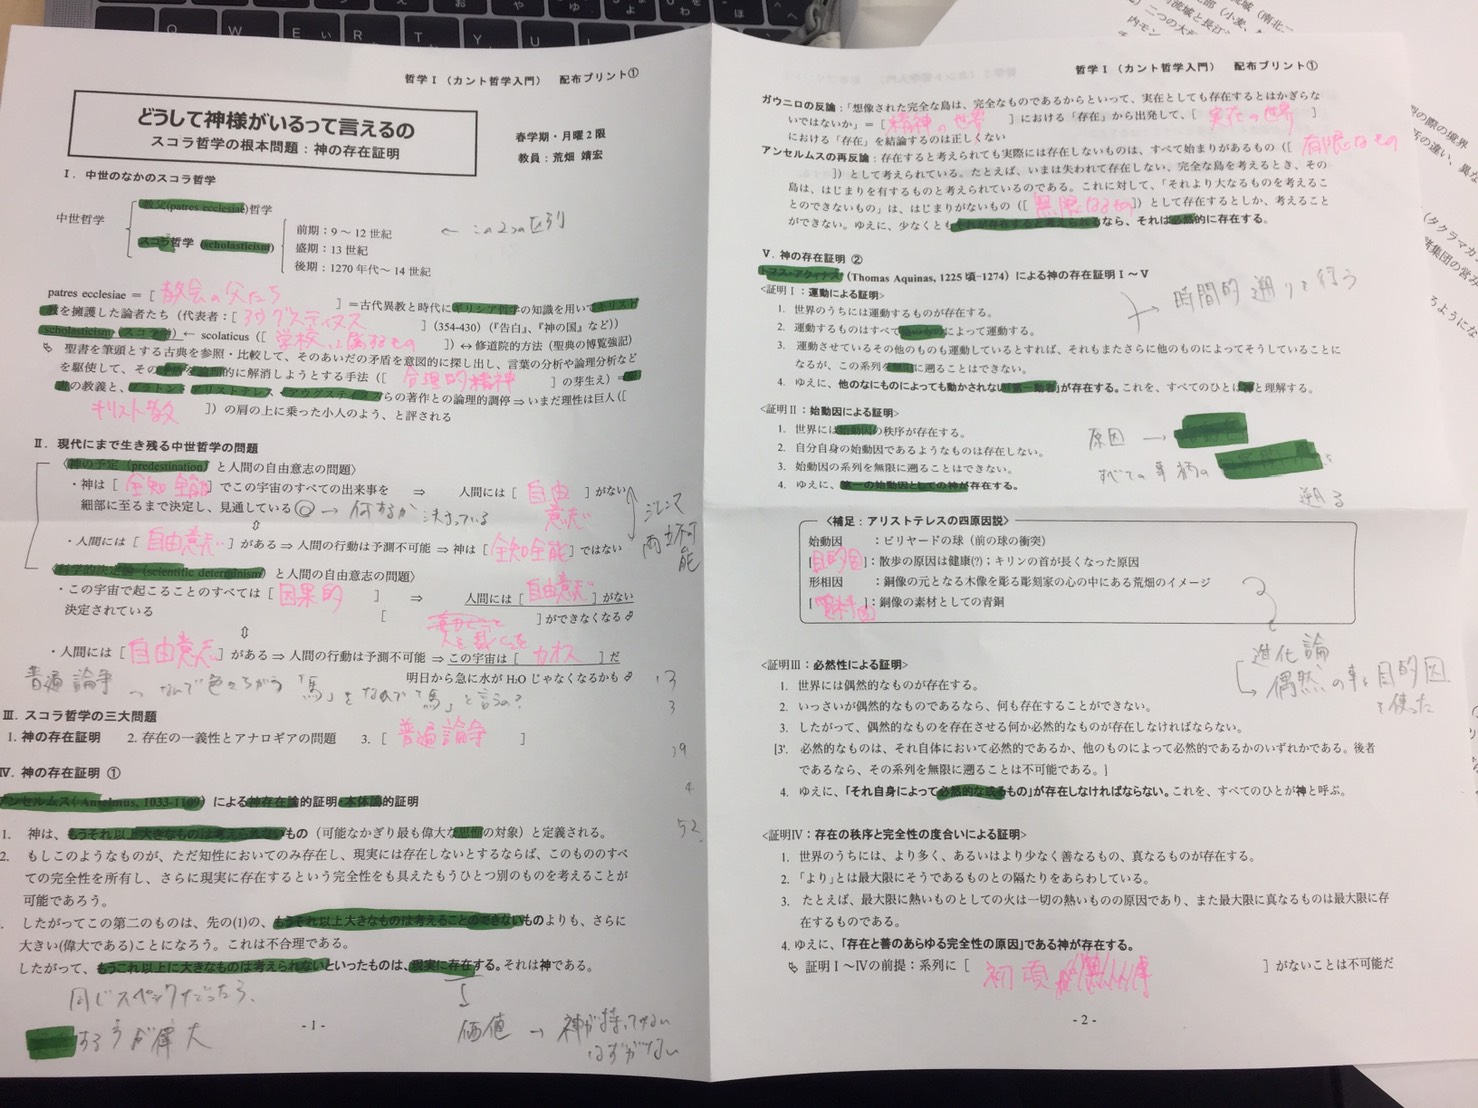 哲学Ⅰ（カント哲学入門）　配布プリント①
どうして神様がいるって言えるの
スコラ哲学の根本問題：神の存在証明
春学期・月曜２限
教員：荒畑 靖宏
Ⅰ．中世のなかのスコラ哲学
中世哲学
教父(patres ecclesiae)哲学
スコラ哲学 (scholasticism)
前期：9～12 世紀
盛期：13 世紀
後期：1270 年代～14 世紀
← この2つの区別
patres ecclesiae＝［ 教会の父たち ］＝古代異教と時代にギリシア哲学の知識を用いてキリスト
教を擁護した論者たち（代表者：［ アウグスティヌス ］(354-430)（『告白』、『神の国』など））
scholasticism（スコラ学）← scolaticus（［ 学校に属するもの ］）↔ 修道院的方法（聖典の博覧強記）
聖書を筆頭とする古典を参照・比較して、そのあいだの矛盾を意図的に探し出し、言葉の分析や論理分析など
を駆使して、その矛盾を論理的に解消しようとする手法（［ 合理的精神 ］の芽生え）＝
の教義と、プラトン、アリストテレス、アウグスティヌスらの著作との論理的調停 ⇒ いまだ理性は巨人（［
キリスト教 ］）の肩の上に乗った小人のよう、と評される
Ⅱ．現代にまで生き残る中世哲学の問題
〈神の予定（predestination）と人間の自由意志の問題〉
・神は［ 全知全能 ］でこの宇宙のすべての出来事を ⇒ 人間には［ 自由意志 ］がない
細部に至るまで決定し、見通している → 何するか 決まっている
⇕
・人間には［ 自由意志 ］がある ⇒ 人間の行動は予測不可能 ⇒ 神は［ 全知全能 ］ではない
ジレンマ
両立不可能
〈科学的決定論（scientific determinism）と人間の自由意志の問題〉
・この宇宙で起こることのすべては［ 因果的 ］ ⇒ 人間には［ 自由意志 ］がない
決定されている ［ 人を裁くことを ］ができなくなる
⇕
・人間には［ 自由意志 ］がある ⇒ 人間の行動は予測不可能 ⇒ この宇宙は［ カオス ］だ
明日から急に水が H₂O じゃなくなるかも
普遍論争 → なんで色々ちがう「馬」をなんで「馬」と言うの？
Ⅲ．スコラ哲学の三大問題
1. 神の存在証明　2. 存在の一義性とアナロギアの問題　3.［ 普遍論争 ］
13
3
39
4
52
Ⅳ．神の存在証明 ①
アンセルムス（Anselmus, 1033-1109）による神存在論的証明・本体論的証明
1. 神は、もうそれ以上大きなものは考えられないもの（可能なかぎり最も偉大な思惟の対象）と定義される。
2. もしこのようなものが、ただ知性においてのみ存在し、現実には存在しないとするならば、このもののすべ
ての完全性を所有し、さらに現実に存在するという完全性をも具えたもうひとつ別のものを考えることが
可能であろう。
したがってこの第二のものは、先の(1)の、もうそれ以上大きなものは考えることのできないものよりも、さらに
大きい(偉大である)ことになろう。これは不合理である。
したがって、もうこれ以上に大きなものは考えられないといったものは、現実に存在する。それは神である。
同じスペックだったら、
する方が偉大
価値 → 神が持ってない
はずがない
- 1 -
哲学Ⅰ（カント哲学入門）　配布プリント①
ガウニロの反論：「想像された完全な島は、完全なものであるからといって、実在としても存在するとはかぎらな
いではないか」＝［ 精神の世界 ］における「存在」から出発して、［ 実在の世界 ］
における「存在」を結論するのは正しくない
アンセルムスの再反論：存在すると考えられても実際には存在しないものは、すべて始まりがあるもの（［ 有限なもの
］）として考えられている。たとえば、いまは失われて存在しない、完全な島を考えるとき、その
島は、はじまりを有するものと考えられているのである。これに対して、「それより大なるものを考えるこ
とのできないもの」は、はじまりがないもの（［ 無限なるもの ］）として存在するとしか、考えること
ができない。ゆえに、少なくともそれが存在すると考えられるなら、それは必然的に存在する。
Ⅴ．神の存在証明 ②
トマス・アクィナス（Thomas Aquinas, 1225 頃-1274）による神の存在証明Ⅰ～Ⅴ
<証明Ⅰ：運動による証明>
→ 時間的遡りを行う
1. 世界のうちには運動するものが存在する。
2. 運動するものはすべて他のものによって運動する。
3. 運動させているその他のものも運動しているとすれば、それもまたさらに他のものによってそうしていることに
なるが、この系列を無限に遡ることはできない。
4. ゆえに、他のなにものによっても動かされない「第一動者」が存在する。これを、すべてのひとは神と理解する。
<証明Ⅱ：始動因による証明>
1. 世界には始動因の秩序が存在する。
2. 自分自身の始動因であるようなものは存在しない。
3. 始動因の系列を無限に遡ることはできない。
4. ゆえに、第一の始動因としての神が存在する。
原因 →
すべての事柄の
遡る
〈補足：アリストテレスの四原因説〉
始動因　：ビリヤードの球（前の球の衝突）
［目的因］：散歩の原因は健康(?)；キリンの首が長くなった原因
形相因　：銅像の元となる木像を彫る彫刻家の心の中にある荒畑のイメージ
［質料因］：銅像の素材としての青銅
進化論
偶然の事を目的因
を使った
<証明Ⅲ：必然性による証明>
1. 世界には偶然的なものが存在する。
2. いっさいが偶然的なものであるなら、何も存在することができない。
3. したがって、偶然的なものを存在させる何か必然的なものが存在しなければならない。
[3'. 必然的なものは、それ自体において必然的であるか、他のものによって必然的であるかのいずれかである。後者
であるなら、その系列を無限に遡ることは不可能である。]
4. ゆえに、「それ自身によって必然的な或るもの」が存在しなければならない。これを、すべてのひとが神と呼ぶ。
<証明Ⅳ：存在の秩序と完全性の度合いによる証明>
1. 世界のうちには、より多く、あるいはより少なく善なるもの、真なるものが存在する。
2. 「より」とは最大限にそうであるものとの隔たりをあらわしている。
3. たとえば、最大限に熱いものとしての火は一切の熱いものの原因であり、また最大限に真なるものは最大限に存
在するものである。
4. ゆえに、「存在と善のあらゆる完全性の原因」である神が存在する。
証明Ⅰ～Ⅳの前提：系列に［ 初項 ］がないことは不可能だ
- 2 -